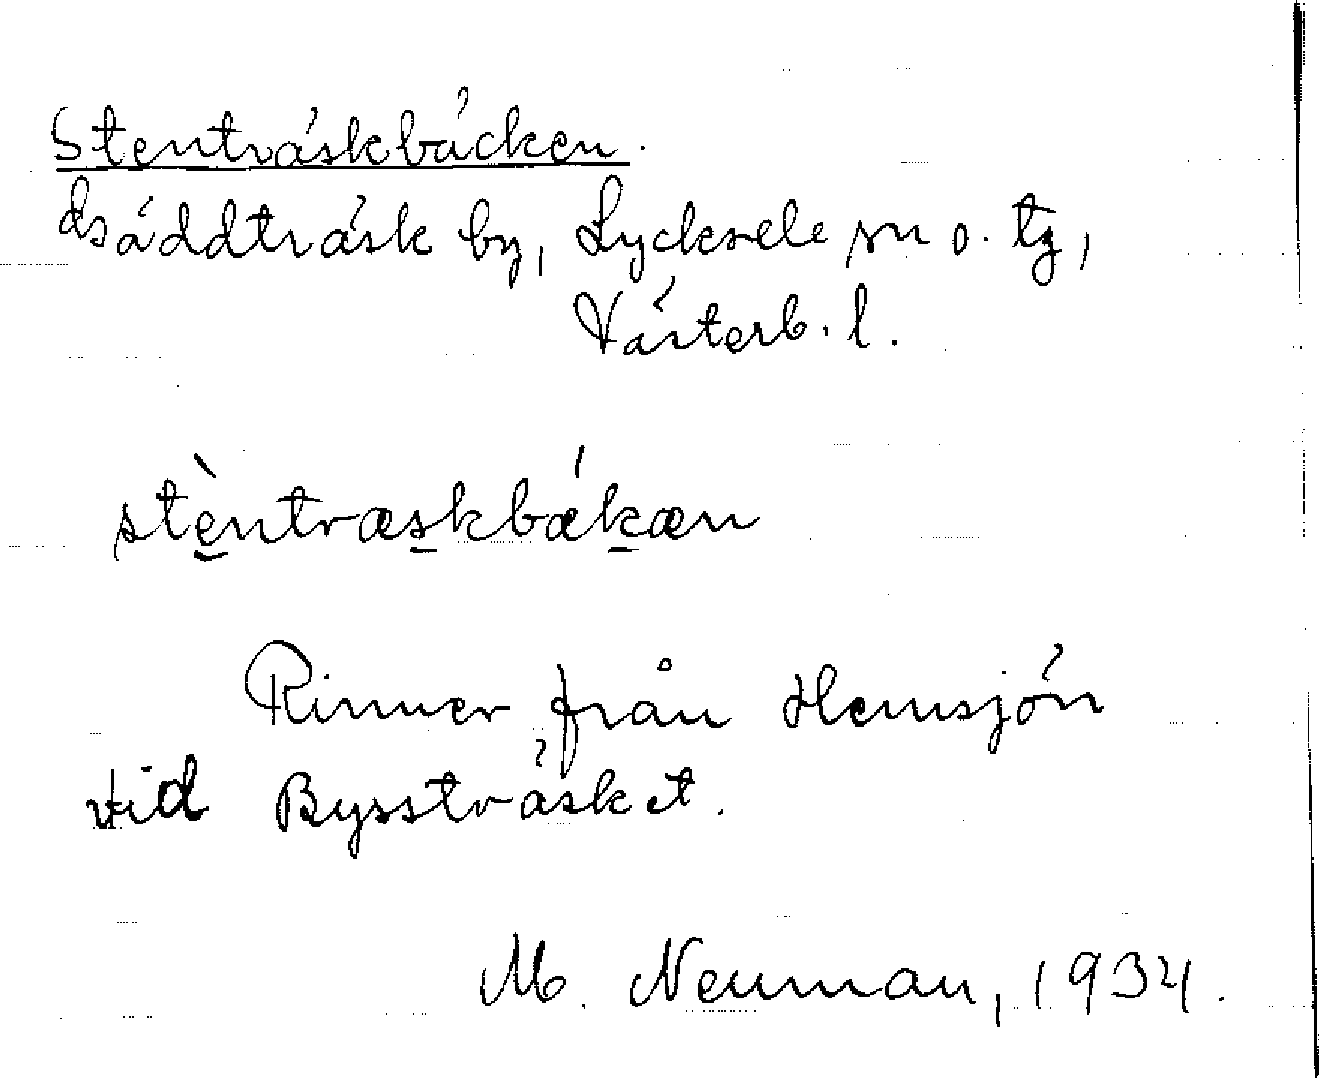 Stenträskbäcken.
Bäddträsk by, Lycksele sn o. tg,
Västerb. l.
stèntræskbækæn
Rinner från Hemsjön
vid Byssträsket.
M. Neuman, 1934.